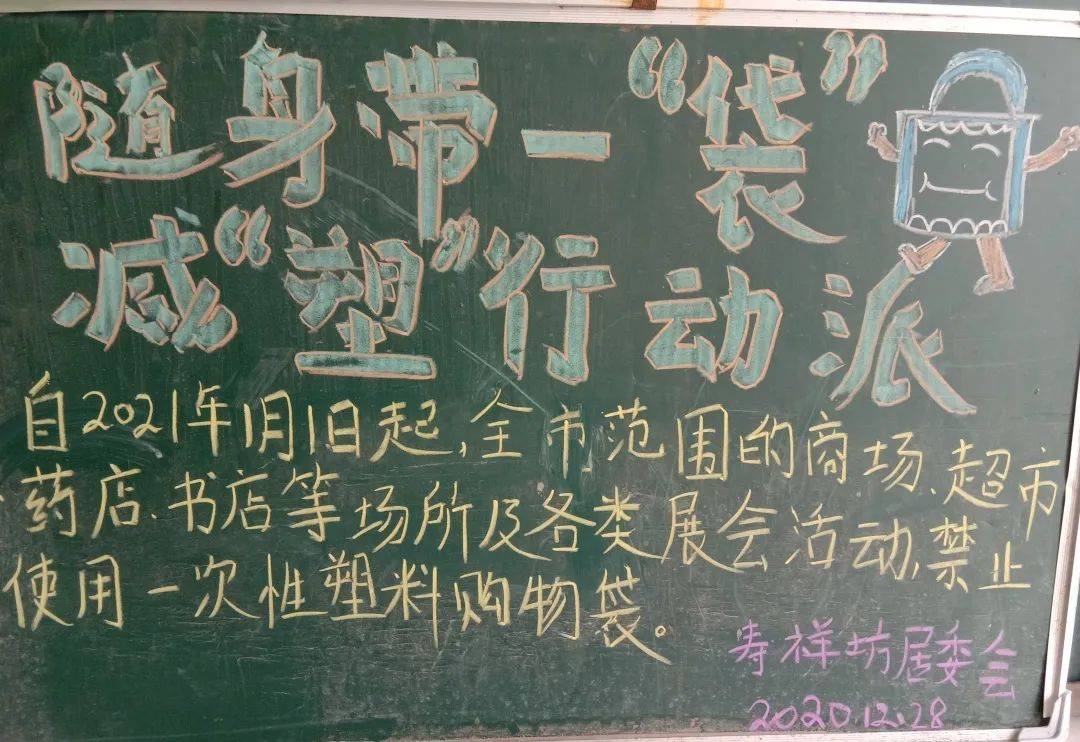 随身带一“袋”
减“塑”行动派
自2021年1月1日起,全市范围的商场、超市
药店、书店等场所及各类展会活动,禁止
使用一次性塑料购物袋。
寿祥坊居委会
2020.12.28